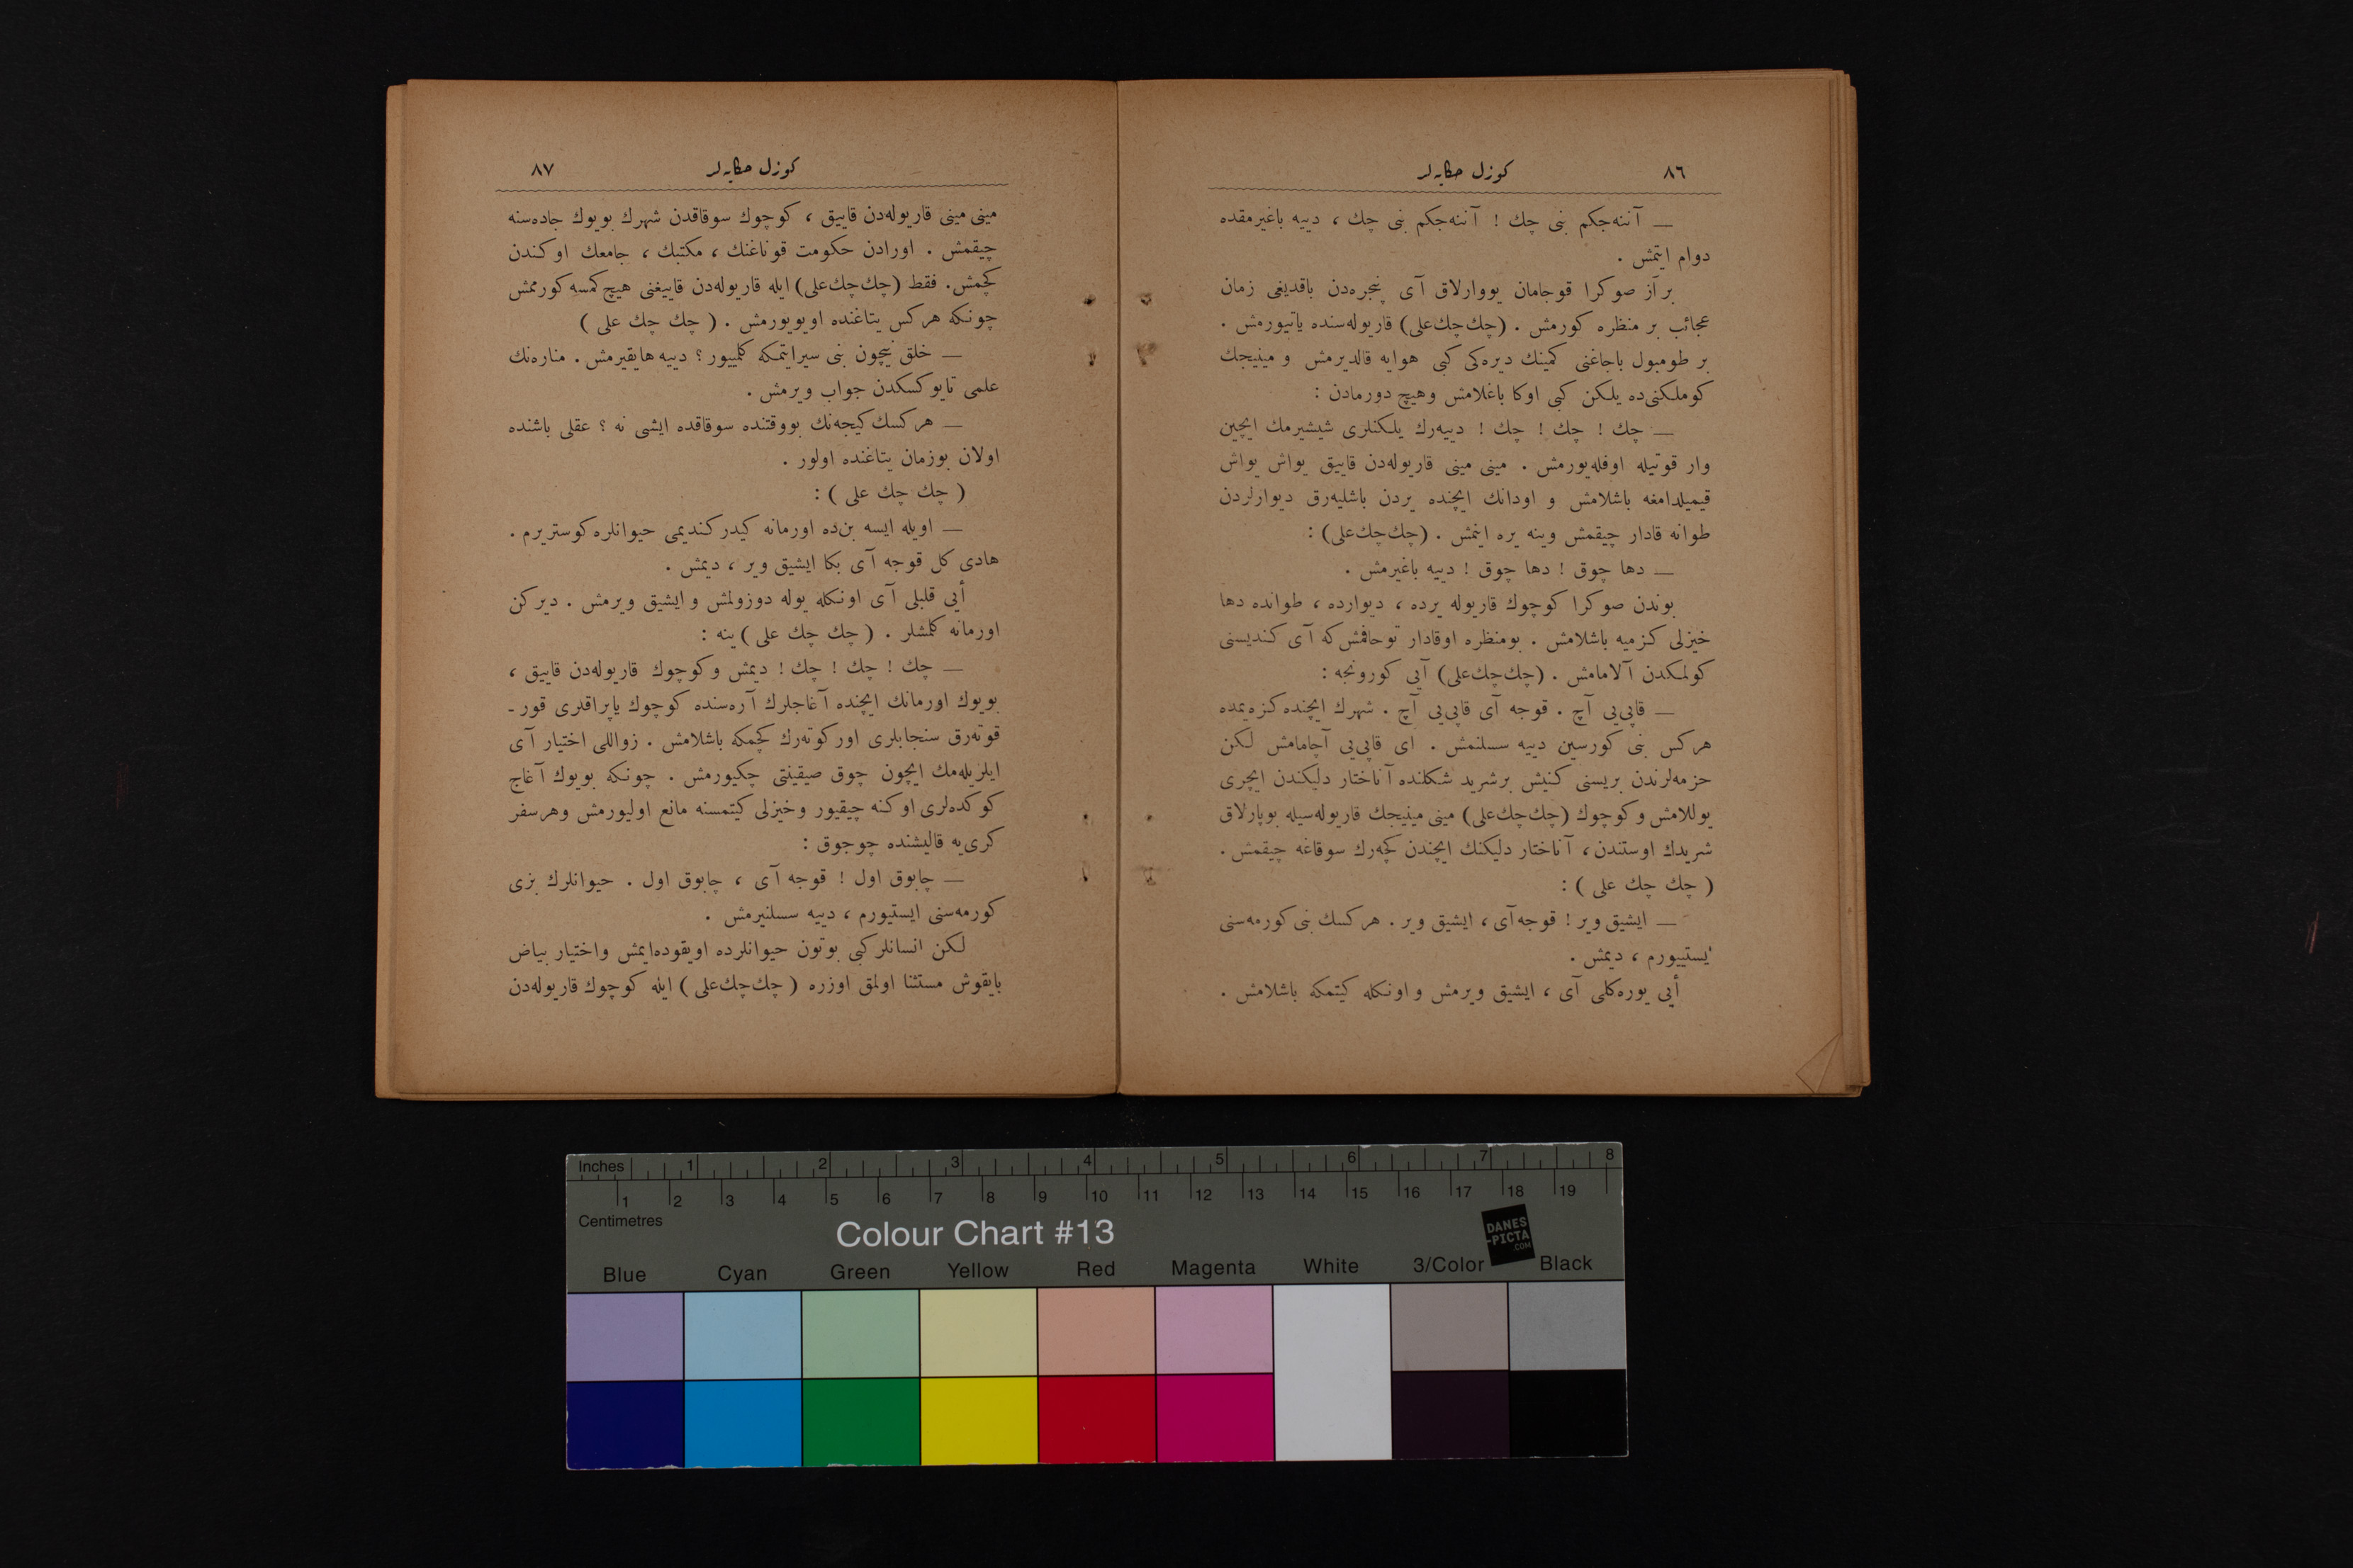 ٨٦
كوزل حكايه لر
— آننه‌جكم بنى چك ! آننه‌جكم بنى چك ، دييه باغيرمقده
دوام ايتمش .
بر آز صوكرا قوجامان يووارلاق آى پنجره‌دن باقديغى زمان
عجائب بر منظره كورمش . (چك‌چك‌على) قاريوله‌سنده ياتيورمش .
بر طومبول باجاغنى كمينك ديره‌كى كبى هوايه قالديرمش و مينيجك
كوملكنى‌ده يلكن كبى اوكا باغلامش وهيچ دورمادن :
— چك ! چك ! چك ! دييه‌رك يلكنلرى شيشيرمك ايچين
وار قوتيله اوفله‌يورمش . مينى مينى قاريوله‌دن قاييق يواش يواش
قيميلدامغه باشلامش و اودانك ايچنده يردن باشليه‌رق ديوارلردن
طوانه قادار چيقمش وينه يره اينمش . (چك‌چك‌على) :
— دها چوق ! دها چوق ! دييه باغيرمش .
بوندن صوكرا كوچوك قاريوله يرده ، ديوارده ، طوانده دها
خيزلى كزميه باشلامش . بومنظره اوقادار توحافمش‌كه آى كنديسنى
كولمكدن آلامامش . (چك‌چك‌على) آيى كورونجه :
— قاپى‌يى آچ . قوجه آى قاپى‌يى آچ . شهرك ايچنده كزه‌يمده
هركس بنى كورسين دييه سسلنمش . اى قاپى‌يى آچامامش لكن
حزمه‌لرندن بريسنى كنيش برشريد شكلنده آناختار دليكندن ايچرى
يوللامش وكوچوك (چك‌چك‌على) مينى مينيجك قاريوله‌سيله بوپارلاق
شريدك اوستندن ، آناختار دليكنك ايچندن كچه‌رك سوقاغه چيقمش .
( چك چك على ) :
— ايشيق وير ! قوجه‌آى ، ايشيق وير . هركسك بنى كورمه‌سنى
ايستييورم ، ديمش .
أيى يوره‌كلى آى ، ايشيق ويرمش و اونكله كيتمكه باشلامش .
كوزل حكايه لر
٨٧
مينى مينى قاريوله‌دن قاييق ، كوچوك سوقاقدن شهرك بويوك جاده‌سنه
چيقمش . اورادن حكومت قوناغنك ، مكتبك ، جامعك اوكندن
كچمش. فقط (چك‌چك‌على) ايله قاريوله‌دن قاييغنى هيچ كمسه كورممش
چونكه هركس يتاغنده اويويورمش . ( چك چك على )
— خلق نيچون بنى سيرايتمكه كلمييور ؟ دييه هايقيرمش . مناره‌نك
علمى تايوكسكدن جواب ويرمش .
— هركسك كيجه‌نك بووقتنده سوقاقده ايشى نه ؟ عقلى باشنده
اولان بوزمان يتاغنده اولور .
( چك چك على ) :
— اويله ايسه بن‌ده اورمانه كيدر كنديمى حيوانلره كوستريرم .
هادى كل قوجه آى بكا ايشيق وير ، ديمش .
أيى قلبلى آى اونكله يوله دوزولمش و ايشيق ويرمش . ديركن
اورمانه كلمشلر . ( چك چك على ) ينه :
— چك ! چك ! چك ! ديمش وكوچوك قاريوله‌دن قاييق ،
بويوك اورمانك ايچنده آغاجلرك آره‌سنده كوچوك ياپراقلرى قور-
قوته‌رق سنجابلرى اوركوته‌رك كچمكه باشلامش . زواللى اختيار آى
ايلريله‌مك ايچون چوق صيقينتى چكيورمش . چونكه بويوك آغاج
كوكده‌لرى اوكنه چيقيور وخيزلى كيتمسنه مانع اوليورمش وهرسفر
كرى‌يه قاليشنده چوجوق :
— چابوق اول ! قوجه آى ، چابوق اول . حيوانلرك بزى
كورمه‌سنى ايستيورم ، دييه سسلنيرمش .
لكن انسانلركبى بوتون حيوانلرده اويقوده‌ايمش واختيار بياض
بايقوش مستثنا اولمق اوزره ( چك‌چك‌على ) ايله كوچوك قاريوله‌دن
Inches 1 2 3 4 5 6 7 8
1 2 3 4 5 6 7 8 9 10 11 12 13 14 15 16 17 18 19
Centimetres
Colour Chart #13
DANES
-PICTA
.COM
Blue Cyan Green Yellow Red Magenta White 3/Color Black